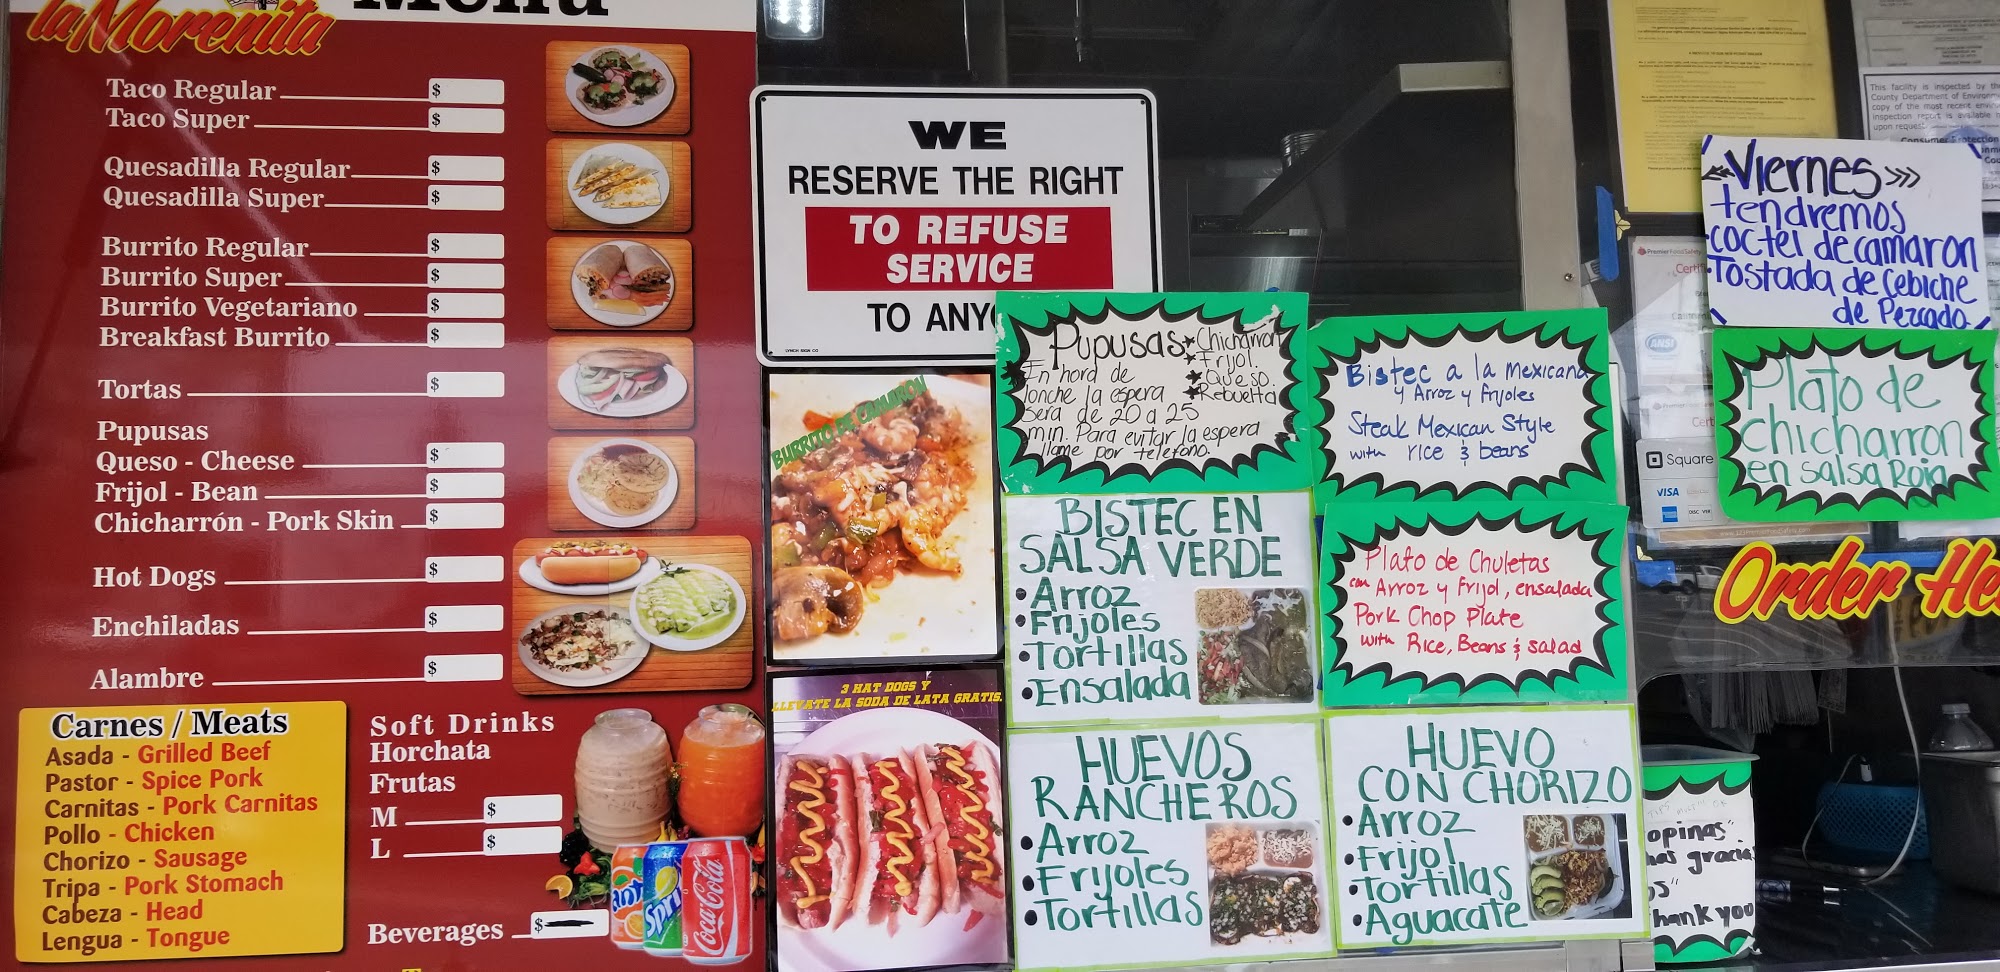 la Morenita
Menu
Taco Regular $
Taco Super $
Quesadilla Regular $
Quesadilla Super $
Burrito Regular $
Burrito Super $
Burrito Vegetariano $
Breakfast Burrito $
Tortas $
Pupusas
Queso - Cheese $
Frijol - Bean $
Chicharrón - Pork Skin $
Hot Dogs $
Enchiladas $
Alambre $
Carnes / Meats
Asada - Grilled Beef
Pastor - Spice Pork
Carnitas - Pork Carnitas
Pollo - Chicken
Chorizo - Sausage
Tripa - Pork Stomach
Cabeza - Head
Lengua - Tongue
Soft Drinks
Horchata
Frutas
M $
L $
Beverages $
Coca-Cola
WE
RESERVE THE RIGHT
TO REFUSE
SERVICE
TO ANYO
LYNCH SIGN CO
BURRITO DE CAMARON
3 HAT DOGS Y
LLEVATE LA SODA DE LATA GRATIS.
Pupusas
Chicharron
Frijol.
Queso.
Rebuelta
En hora de
lonche la espera
sera de 20 a 25
min. Para evitar la espera
llame por telefono.
Bistec a la mexicana
y Arroz y Frijoles
Steak Mexican Style
with rice & beans
BISTEC EN
SALSA VERDE
• Arroz
• Frijoles
• Tortillas
• Ensalada
Plato de Chuletas
con Arroz y Frijol, ensalada
Pork Chop Plate
with Rice, Beans & salad
HUEVOS
RANCHEROS
• Arroz
• Frijoles
• Tortillas
HUEVO
CON CHORIZO
• Arroz
• Frijol
• Tortillas
• Aguacate
This facility is inspected by the
County Department of Environ
copy of the most recent
inspection report is available
upon request
Consumer Protection
Viernes
tendremos
coctel de camaron
Tostada de Cebiche
de Pezcado.
Plato de
chicharron
en salsa Roja
ANSI
Square
VISA
Order He
opinas"
as gracias
os"
Thank you